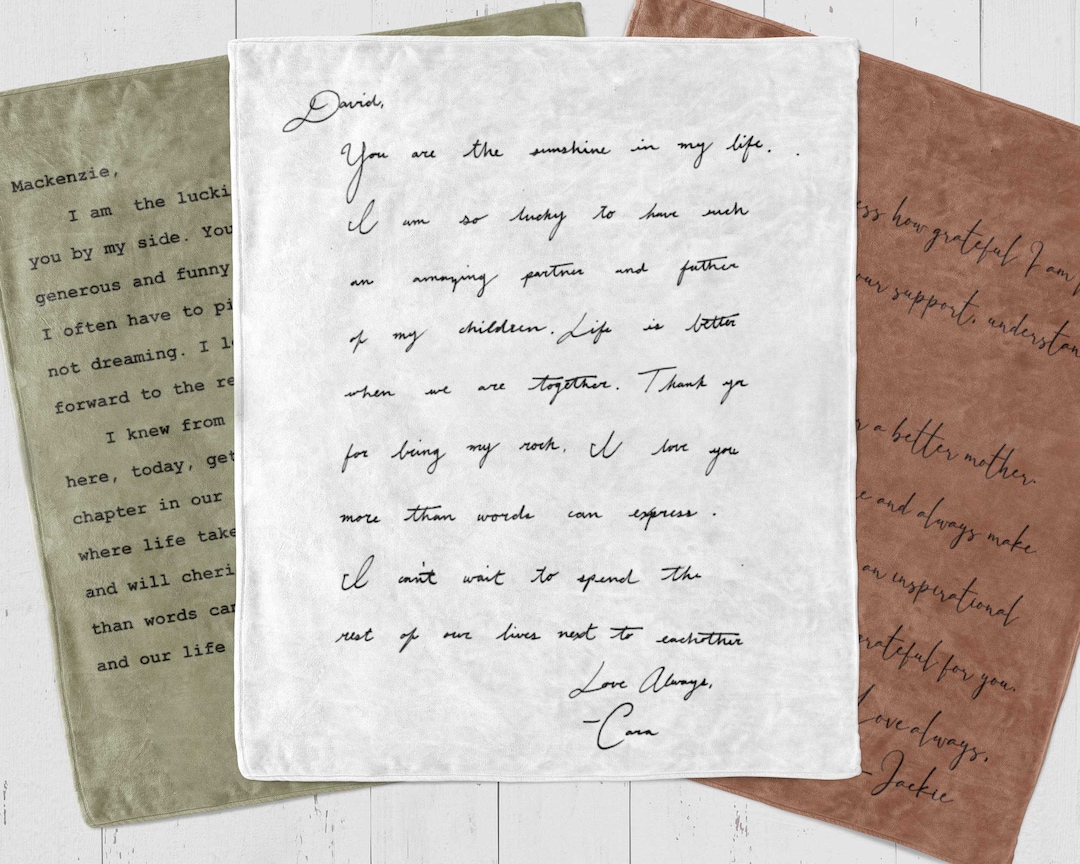 Mackenzie,
I am the lucki
you by my side. You
generous and funny
I often have to pi
not dreaming. I l
forward to the re
I knew from
here, today, get
chapter in our
where life take
and will cheri
than words can
and our life
David,
You are the sunshine in my life.
I am so lucky to have such
an amazing partner and father
of my children. Life is better
when we are together. Thank yo
for being my rock. I love you
more than words can express.
I can't wait to spend the
rest of our lives next to eachother
Love Always,
-Cara
ess how grateful I am f
our support, understan
r a better mother.
e and always make
an inspirational
grateful for you.
Love always,
-Jackie